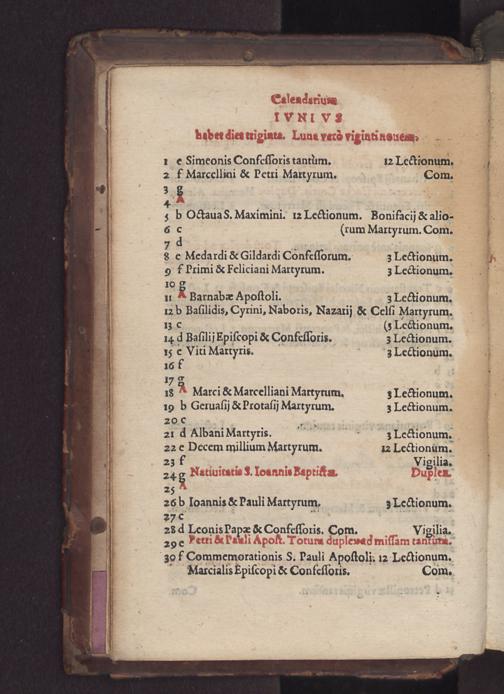 Calendarium
IVNIVS
habet dies triginta. Luna verò viginti nouem.
1 e Simeonis Confessoris tantùm. 12 Lectionum.
2 f Marcellini & Petri Martyrum. Com.
3 g
4 A
5 b Octaua S. Maximini. 12 Lectionum. Bonifacij & alio-
6 c (rum Martyrum. Com.
7 d
8 e Medardi & Gildardi Confessorum. 3 Lectionum.
9 f Primi & Feliciani Martyrum. 3 Lectionum.
10 g
11 A Barnabæ Apostoli. 3 Lectionum.
12 b Basilidis, Cyrini, Naboris, Nazarij & Celsi Martyrum.
13 c (5 Lectionum.
14 d Basilij Episcopi & Confessoris. 3 Lectionum.
15 e Viti Martyris. 3 Lectionum.
16 f
17 g
18 A Marci & Marcelliani Martyrum. 3 Lectionum.
19 b Geruasij & Protasij Martyrum. 3 Lectionum.
20 c
21 d Albani Martyris. 3 Lectionum.
22 e Decem millium Martyrum. 12 Lectionum.
23 f Vigilia.
24 g Natiuitatis S. Ioannis Baptistæ. Duplex.
25 A
26 b Ioannis & Pauli Martyrum. 3 Lectionum.
27 c
28 d Leonis Papæ & Confessoris. Com. Vigilia.
29 e Petri & Pauli Apost. Totum duplex ad missam tantum.
30 f Commemorationis S. Pauli Apostoli. 12 Lectionum.
Marcialis Episcopi & Confessoris. Com.